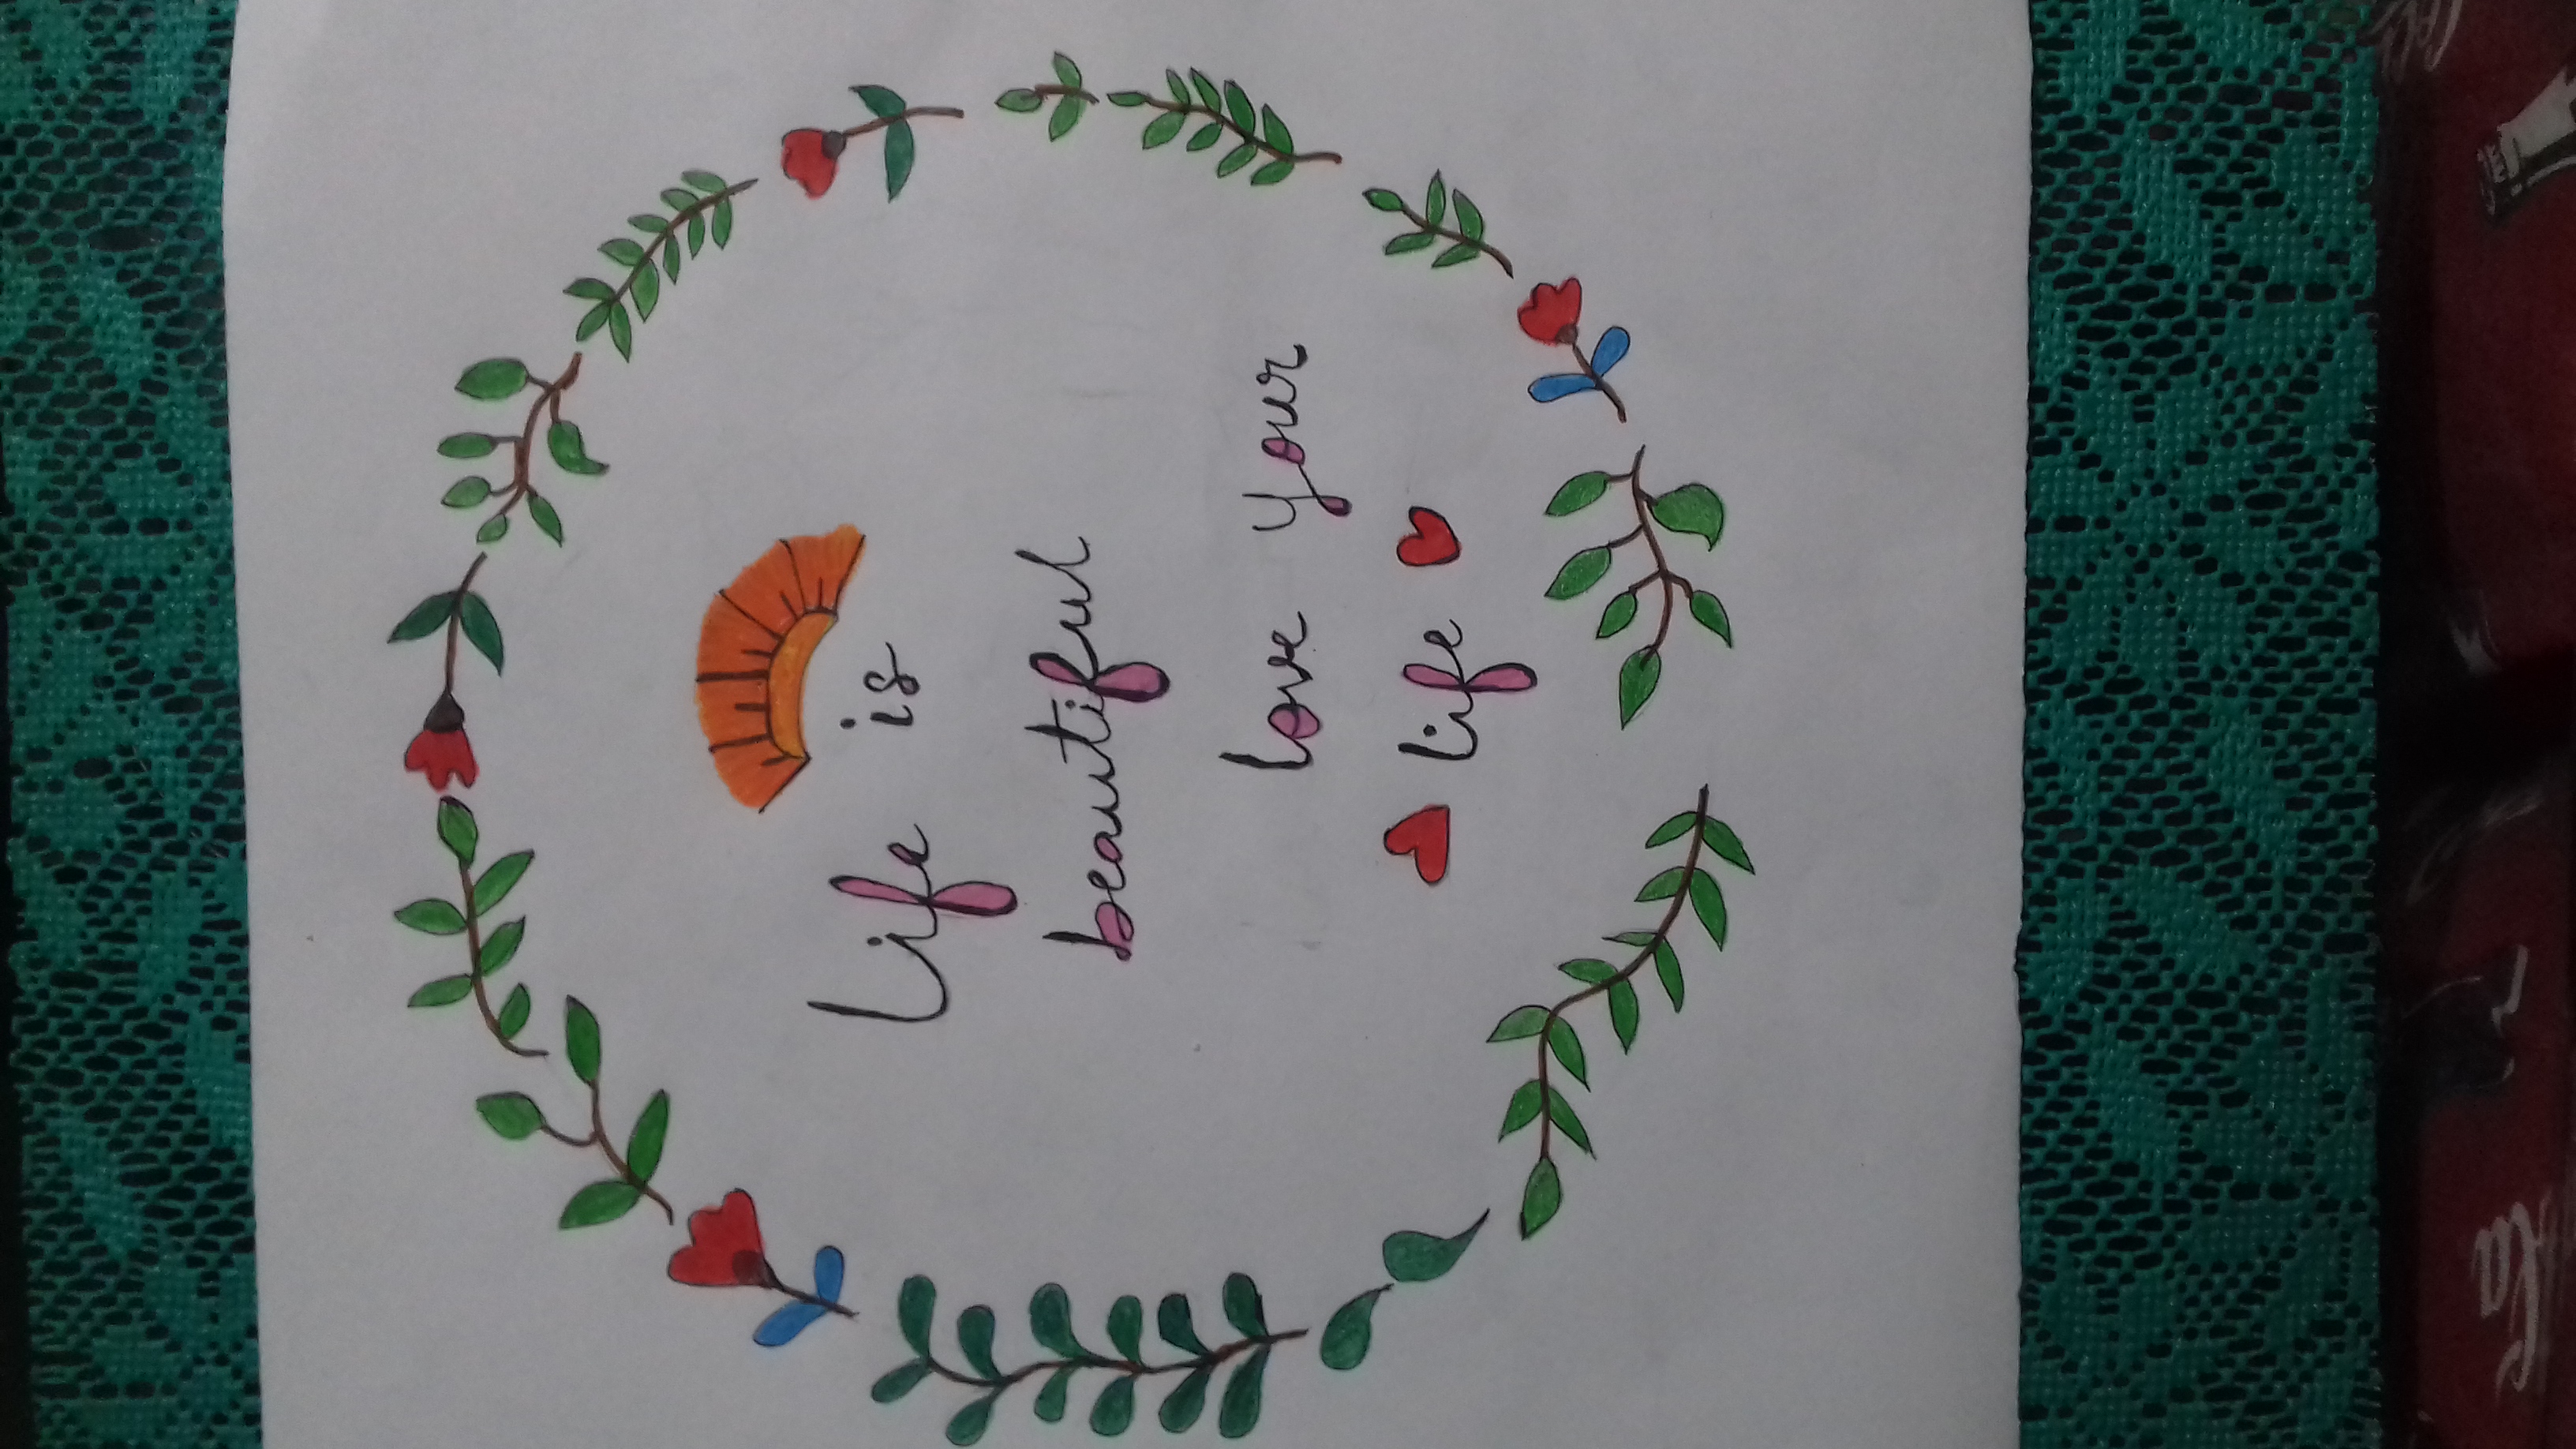 Life is
beautiful
love your
life